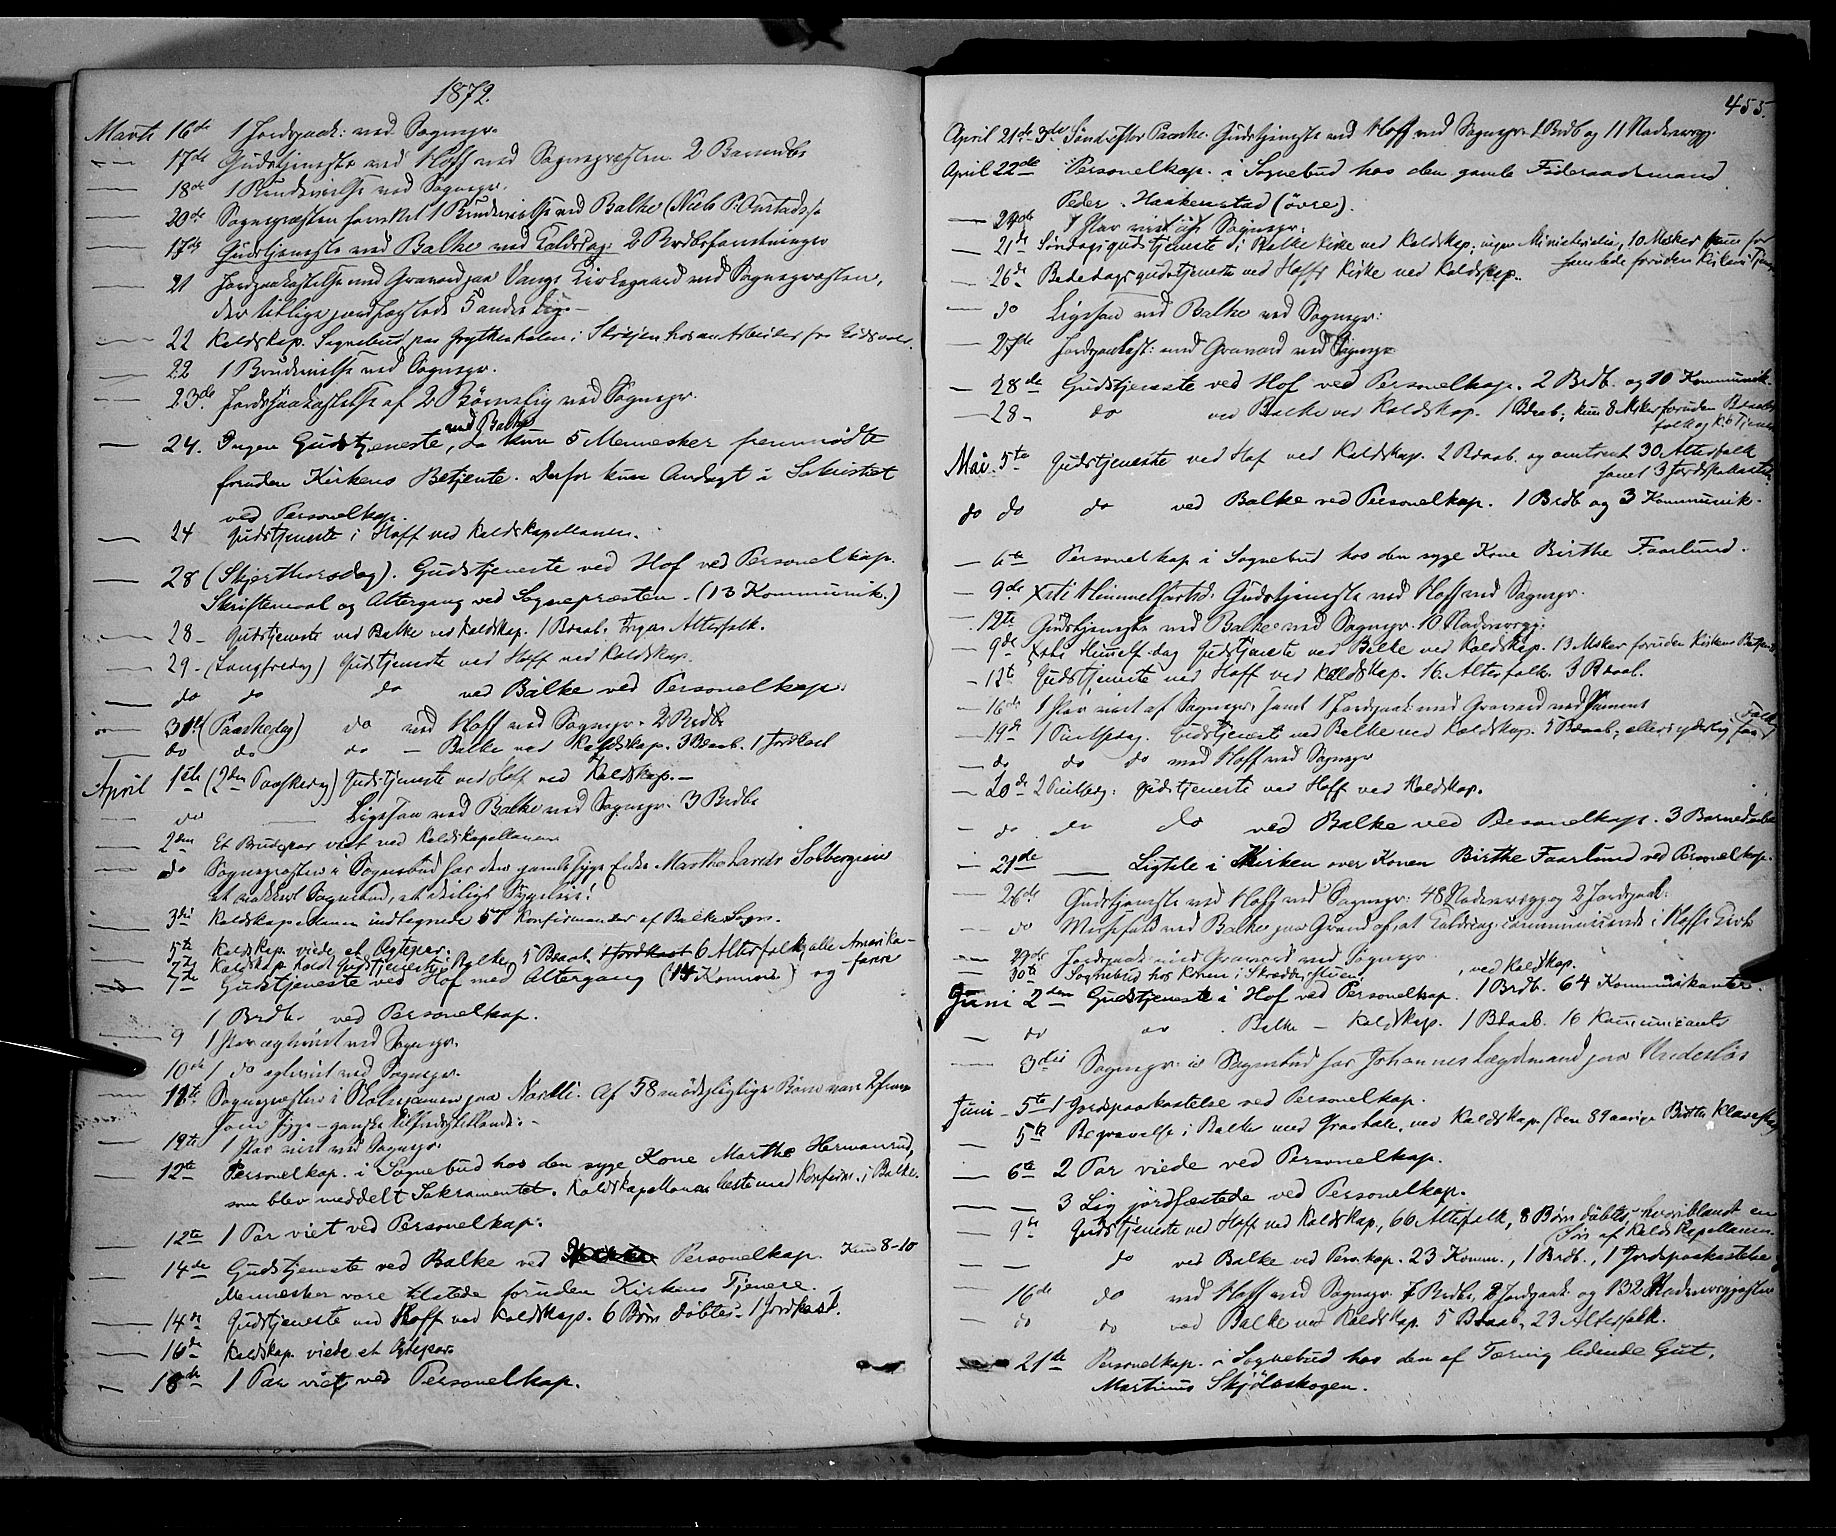 1872.
Marts 16de 1 Jordpaak: ved Sognepr.
17de Gudstjeneste ved Hoff ved Sognepræsten. 2 Barnedb.
18de 1 Brudevielse ved Sognepr.
20de Sognepræsten 1 Brudevielse ved Balke (Niels P.
17de Gudstjeneste ved Balke ved Kaldskap: 2
21 Jordpaakastelse med Gravard paa Vangs Kirkegaard ved Sognepræsten,
5 andre Lig.
22 Kaldskap. Sognebud paa i hos en Arbeider fra Eidsvold.
22 1 Brudevielse ved Sognepr.
23de Jordpaakastelse af 2 Børnelig ved Sognepr.
ved Balke
24. Ingen Gudstjeneste, da kun 5 Mennesker fremmødte
foruden Kirkens Betjente. Derfor kun Andagt i Sakristiet
ved Personelkap.
24 Gudstjeneste i Hoff ved Kaldskapellanen.
28 (Skjerthorsdag). Gudstjeneste ved Hof ved Personelkap.
Skriftemaal og Altergang ved Sognepræsten. (13 Kommunik.)
28 - Gudstjeneste ved Balke ved Kaldskap. 1 Bdaab. Ingen Alterfolk.
29 - (Langfredag) Gudstjeneste ved Hoff ved Kaldskap.
do do do ved Balke ved Personelkap.
31te (Paaskedag) do ved Hoff ved Sognepr. 2 Brdb.
do do do - Balke ved Kaldskap. 3 Bdaab. 1 Jordkast
April 1ste (2den Paaskedag) Gudstjeneste ved Hoff ved Kaldskap. -
do Ligtale ved Balke ved Sognepr: 3 Brdb.
2den Et Brudepar viet ved Kaldskapellanen
do Sognepræsten i Sognebud hos den gamle syge Enke Marthe
3die Kaldskapellanen indtegnede 57 Konfirmander af Balke Sogn.
5te Kaldskap. viede et Egtepar.
7de Kaldskap. holdt Gudstjeneste i Balke, 5 Bdaab. 1 Jordkast 6 Alterfolk, alle Amerika-
farere
7de Gudstjeneste ved Hof med Altergang (14 Kommun.) og
1 Brdb. ved Personelkap.
9 1 Par ægteviet ved Sognepr.
10de 1 do ægteviet ved Sognepr.
11te Sognepræsten i paa Narlli. Af 58 mødepligtige Børn vare
12te 1 Par viet ved Sognepr.
12te Personelkap. i Sognebud hos den syge Kone Marthe Hermanrud,
som blev meddelt Sakramentet. Kaldskapellanen læste med Konfirm. i Balke.
12te 1 Par viet ved Personelkap.
14de Gudstjeneste ved Balke ved Personelkap. Kun 8-10
Mennesker vare tilstede foruden Kirkens Tjenere.
14de Gudstjeneste ved Hoff ved Kaldskap. 6 Børn døbtes. 1 Jordkast.
16de Kaldskap. viede et Egtepar
18de 1 Par viet ved Personelkap.
455.
April 21de 3de Sønd. efter Paaske. Gudstjeneste ved Hoff ved Sognepr. 1 Brdb og 11 Nadvergj.
April 22de Personelkap. i Sognebud hos den gamle Føderaadsmand
Peder Haakenstad (øvre).
24de 1 Par viet af Sognepr.
21de Søndagsgudstjeneste i Balke Kirke ved Kaldskap. ingen Ministerialia, 10 Mesker kun for-
samlede foruden Kirkens Tjen.
26de Bededagsgudstjeneste ved Hoffs Kirke ved Kaldskap.
do Ligtale ved Balke ved Sognepr:
27de Jordpaakast: med Gravard ved Sognepr
28de Gudstjeneste ved Hof ved Personelkap. 2 Brdb. og 10 Kommunik.
28 - do ved Balke ved Kaldskap. 1 Bdaab; kun 8 Mskr foruden Bdaabs-
folk og K. Tjenere
Mai. 5te Gudstjeneste ved Hof ved Kaldskap. 2 Bdaab. og omtrent 30 Alterfolk
samt 3 Jordpaakastelse
do do do ved Balke ved Personelkap. 1 Brdb og 3 Kommunik.
6te Personelkap i Sognebud hos den syge Kone Birthe Faarlund.
9de Xsti Himmelfartsd: Gudstjeneste ved Hoff ved Sognepr.
12te Gudstjeneste ved Balke ved Sognepr. 10 Nadvergj.
9de Xsti Himelf. dag Gudstjeneste ved Balke ved Kaldskap. 13 Msker foruden Kirkens Betjente
12te Gudstjeneste ved Hoff ved Kaldskap. 16 Alterfolk. 3 Bdaab.
16de 1 Par viet af Sognepr. samt 1 Jordpaak. med Gravard ved
19de 1 Pintsedag. Gudstjeneste ved Balke ved Kaldskap. 5 Bdaab, ellers yderlig faa Folk
do do do ved Hoff ved Sognepr
20de 2 Pintsedg: Gudstjeneste ved Hoff ved Kaldskap.
do do do ved Balke ved Personelkap. 3 Barnedaab
21de Ligtale i Kirken over Konen Birthe Faarlund ved Personelkap.
26de Gudstjeneste ved Hoff ved Sognepr: 48 Nadvergj. og 2 Jordpaak.
do Messefald ved Balke paa Grund af, at Kaldskap. communicerede i Hoffs Kirke
29de Jordpaak. med Gravard ved Sognepr.
30te Sognebud hos Konen i Skrædderstuen, ved Kaldskap.
Juni 2den Gudstjeneste i Hof ved Personelkap. 1 Brdb. 64 Kommunikanter.
do do Balke - Kaldskap. 1 Bdaab. 16 Kommunicants
3die Sognepr. i Sognebud hos Johannes Lægdmand paa
Juni - 5te 1 Jordpaakastelse ved Personelkap.
5te Begravelse i Balke med Gravtale, ved Kaldskap. (den 89 aarige Birthe
6te 2 Par viede ved Personelkap.
3 Lig jordfæstede ved Personelkap.
9de Gudstjeneste ved Hoff ved Kaldskap, 66 Alterfolk, 8 Børn døbtes - hvoriblandt en
Søn af Kaldskapellanen.
do ved Balke ved Perskap. 23 Komm., 1 Brdb., 1 Jordpaakastelse
16de do ved Hoff ved Sognepr. 7 Brdb. 2 Jordpaak. og 132 Nadvergjæster
do do ved Balke ved Kaldskap. 5 Bdaab, 23 Alterfolk.
21de Personelkap. i Sognebud hos den af Tæring lidende Gut,
Martinus Skjølaskogen.